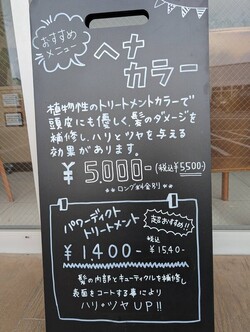 おすすめ
メニュー
ヘナ
カラー
植物性のトリートメントカラーで
頭皮にも優しく髪のダメージを
補修し、ハリとツヤを与える
効果があります。
¥5000-(税込¥5500-
**ロング料金別り**
パワーディクト
トリートメント
店長おすすめ!!
¥1400-
税込
¥1540-
髪の内部とキューティクルを補修し
表面をコートする事により
ハリ・ツヤUP!!